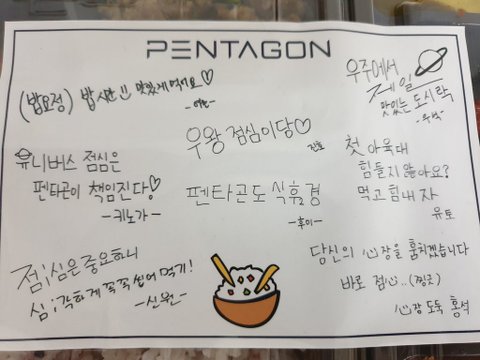 PENTAGON
(밥요정) 밥시간!! 맛있게 먹어요♡
-여원-
우주에서
제일
맛있는 도시락
-우석-
우왕 점심이당♡
진호
유니버스 점심은
펜타곤이 책임진다♡
-키노가-
첫 아육대
힘들지 않아요?
먹고 힘내자
유토
펜타곤도 식후경
-후이-
당신의 心장을 훔치겠습니다
바로 점心..(찡긋)
心장 도둑 홍석
점;심은 중요하니
심;각하게 꼭꼭 씹어 먹기!
-신원-